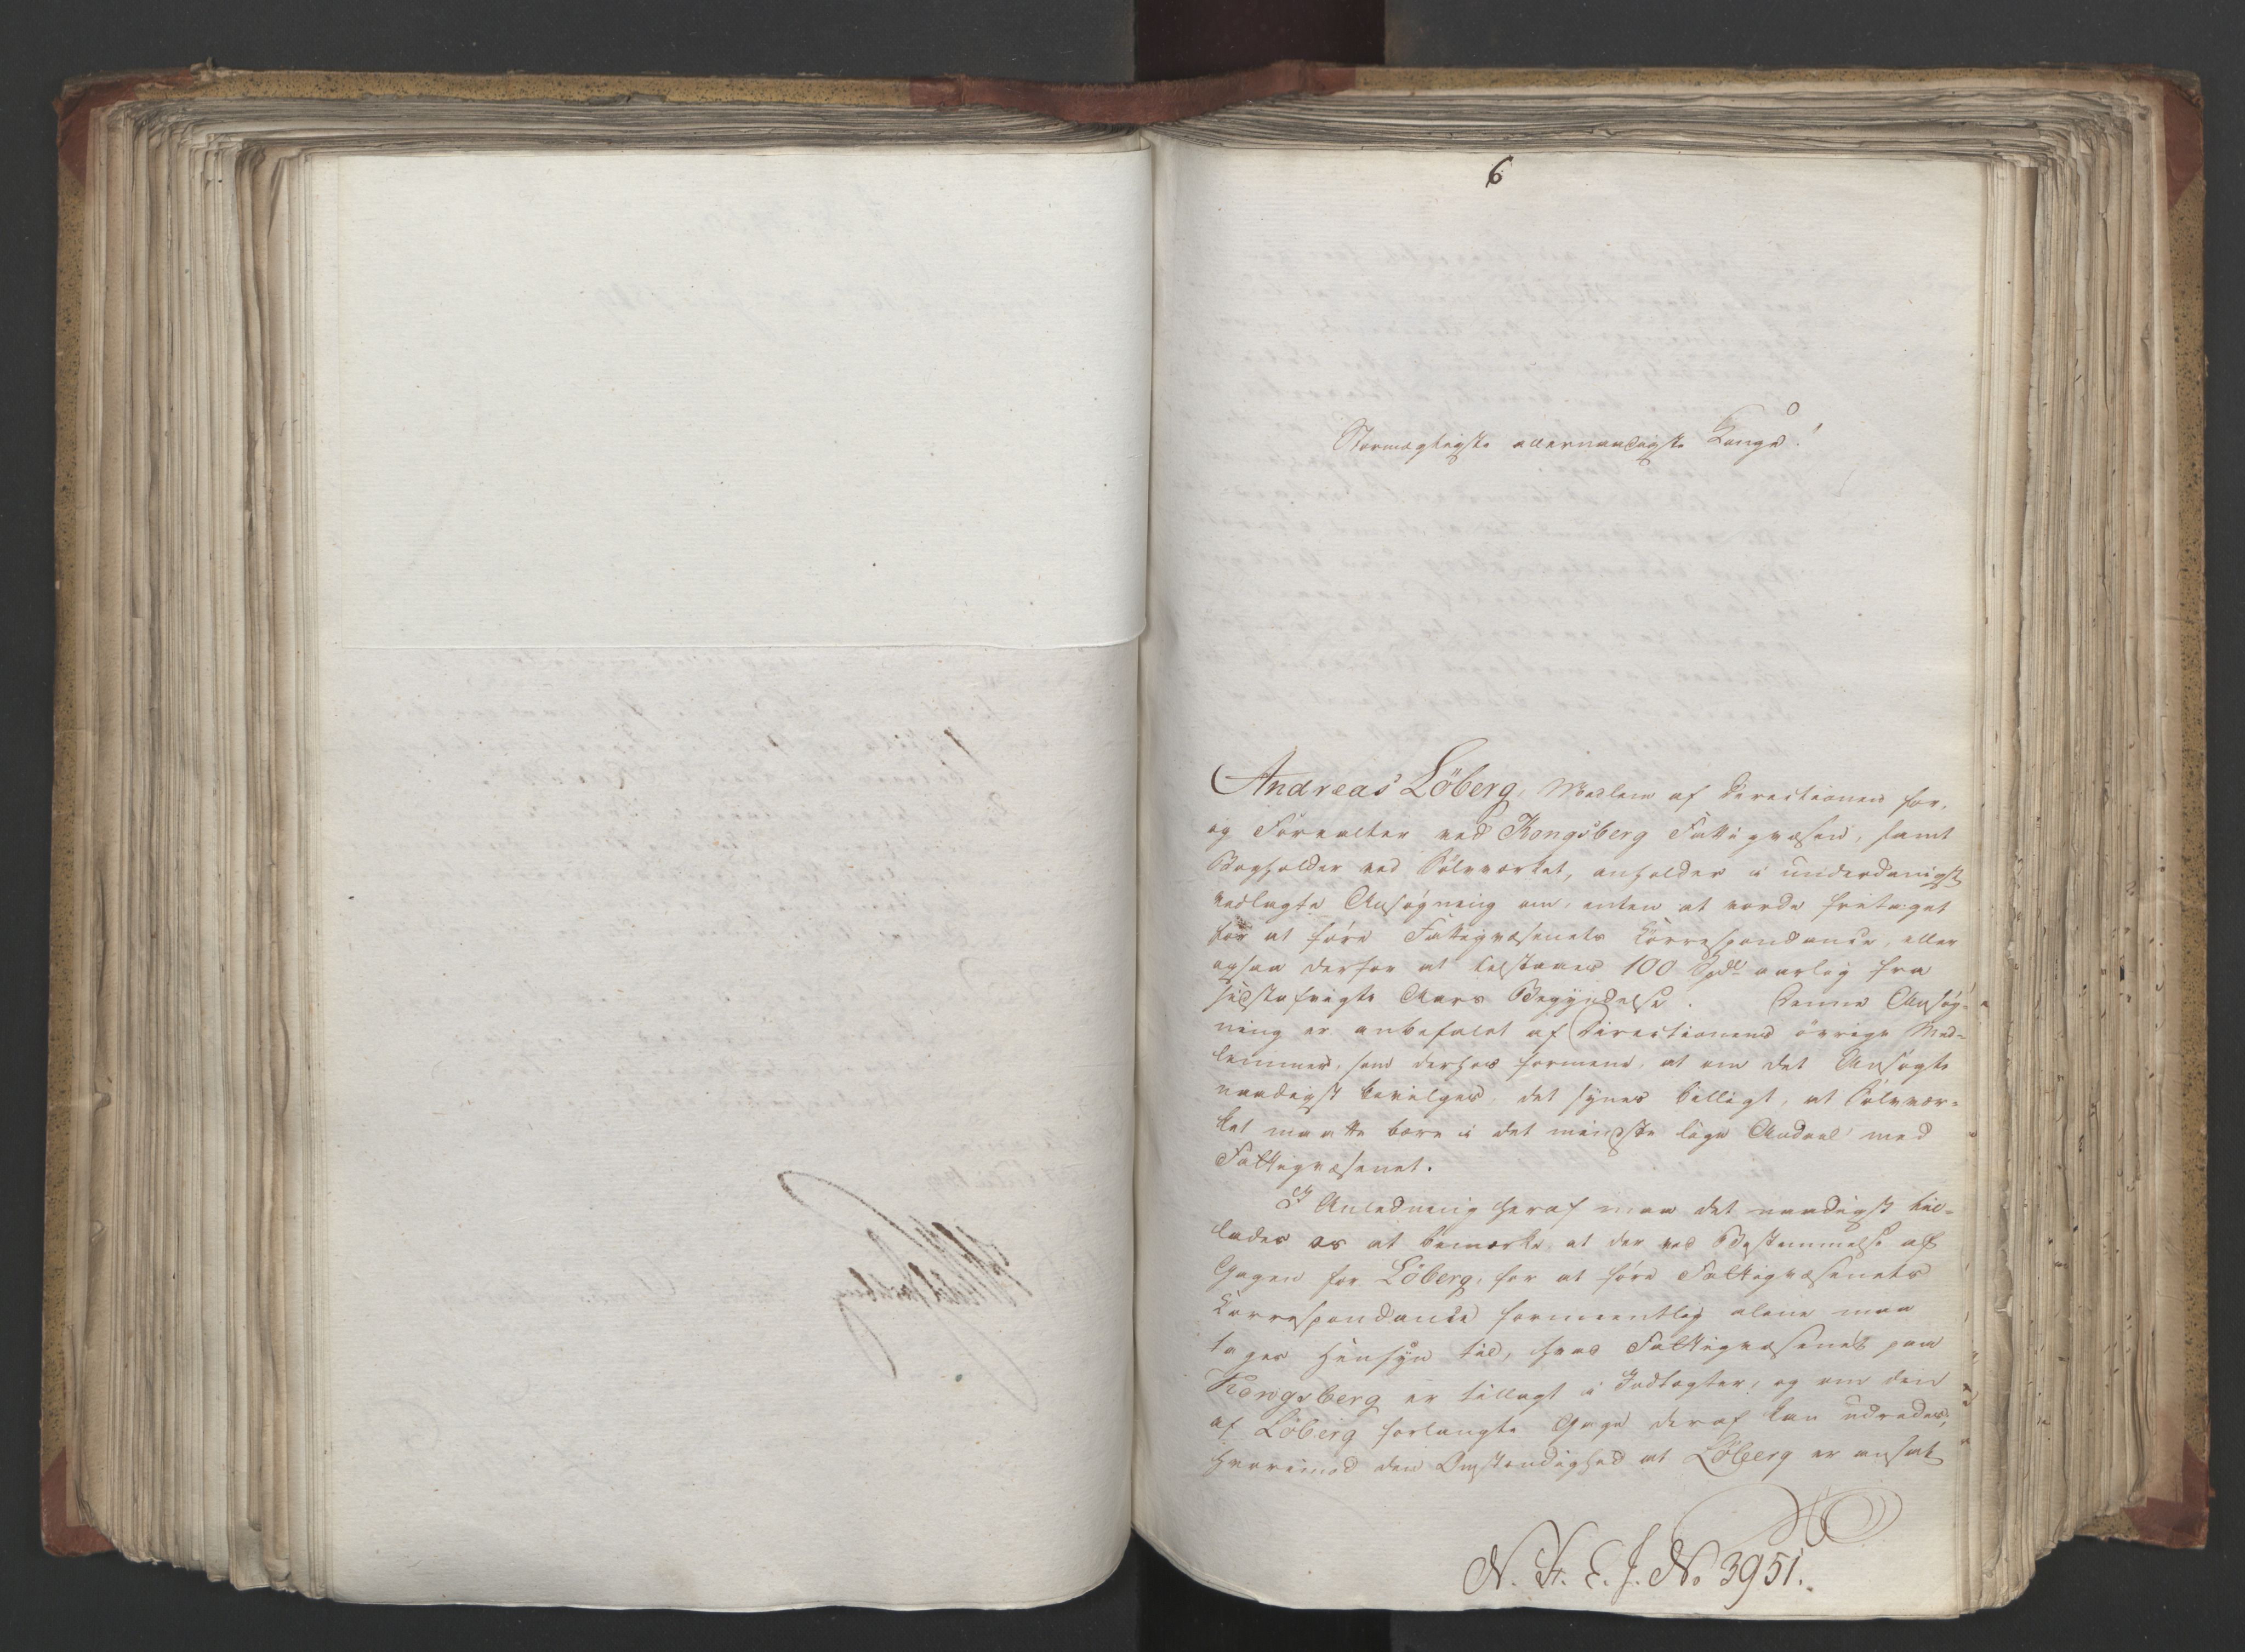 6
Stormægtigste allernaadigste Konge!
Andreas Löberg, Medlem af Directionen for,
og Forvalter ved Kongsberg Fattigvæsen, samt
Bogholder ved Sölvværket, anholder i underdanigst
vedlagte Ansögning om, enten at vorde fritaget
for at före Fattigvæsenets Correspondance, eller
ogsaa derfor at tilstaaes 100 Spdl aarlig fra
sidstafvigte Aars Begyndelse. Denne Ansög-
ning er anbefalet af Directionens övrige Med-
lemmer, som derhos formene, at om det Ansögte
naadigst bevilges, det synes billigt, at Sölvvær-
ket maatte bære i det mindste lige Andeel med
Fattigvæsenet.
I Anledning heraf maa det naadigst til-
lades os at bemærke at der ved Bestemmelse af
Gagen for Löberg, for at före Fattigvæsenets
Correspondance formeentlig alene maa
tages Hensyn til, hvad Fattigvæsenet paa
Kongsberg er tillagt i Indtægter, og om den
af Löberg forlangte Gage deraf kan udredes,
hvorimod den Omstændighed at Löberg er ansat
N. H. E. J. No 3951.